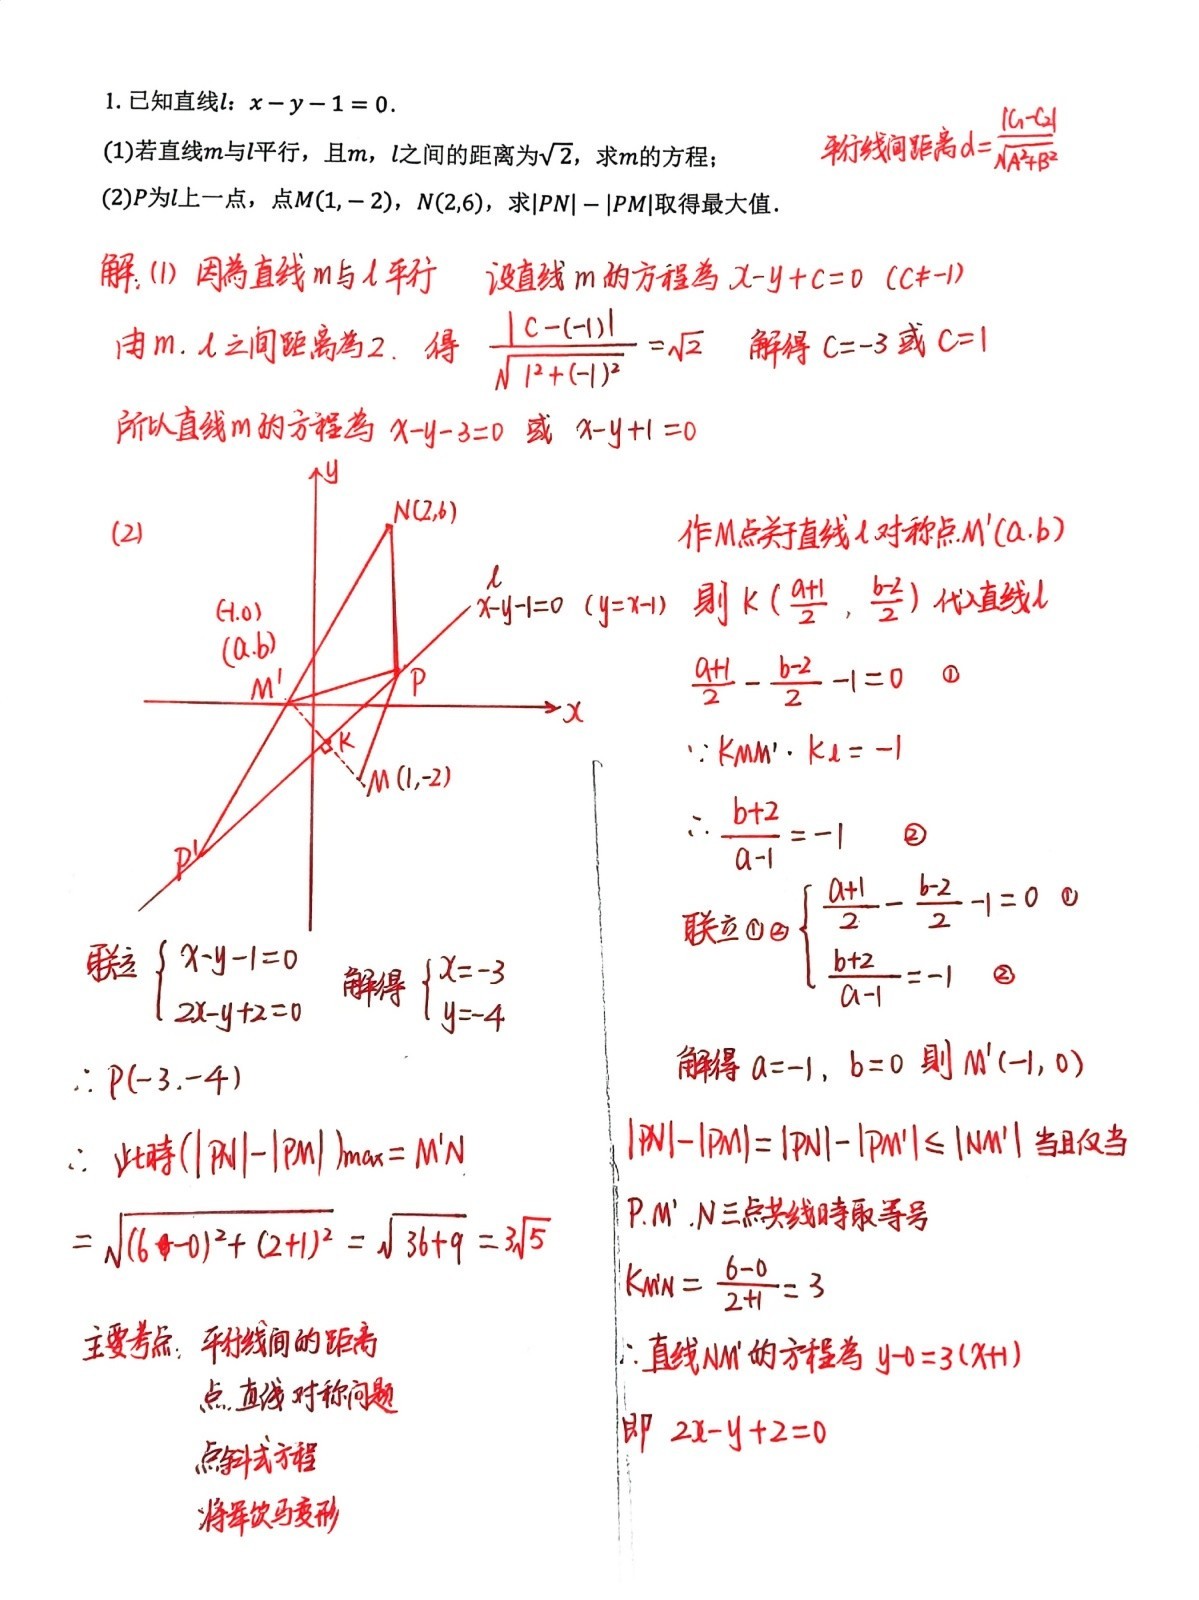 1. 已知直线l：x − y − 1 = 0.
(1)若直线m与l平行，且m，l之间的距离为√2，求m的方程；
(2)P为l上一点，点M(1, − 2)，N(2,6)，求|PN| − |PM|取得最大值.
平行线间距离d=|C₁-C₂|/√A²+B²
解:(1) 因為直线m与l平行 设直线m的方程為 x-y+C=0 (C≠-1)
由m.l之间距离為2. 得 |C-(-1)|/√1²+(-1)² =√2 解得 C=-3 或 C=1
所以直线m的方程為 x-y-3=0 或 x-y+1=0
(2)
y
N(2,6)
l
x-y-1=0 (y=x-1)
(-1.0)
(a.b)
M'
P
x
K
M(1,-2)
P'
联立 { x-y-1=0
2x-y+2=0
解得 { x=-3
y=-4
∴ P(-3.-4)
∴ 此時(|PN|-|PM|)max= M'N
= √(6-0)²+(2+1)² = √36+9 = 3√5
主要考点: 平行线间的距离
点.直线对称问题
点斜式方程
将军饮马变形
作M点关于直线l对称点M'(a.b)
則 K ( a+1/2 , b-2/2 ) 代入直线l
a+1/2 - b-2/2 -1=0 ①
∵ KMM' · Kl = -1
∴ b+2/a-1 = -1 ②
联立①② { a+1/2 - b-2/2 -1=0 ①
b+2/a-1 = -1 ②
解得 a=-1, b=0 則 M'(-1,0)
|PN|-|PM|=|PN|-|PM'|≤|NM'| 当且仅当
P.M'.N三点共线時取等号
KM'N = 6-0/2+1 = 3
∴直线NM'的方程為 y-0=3(x+1)
即 2x-y+2=0